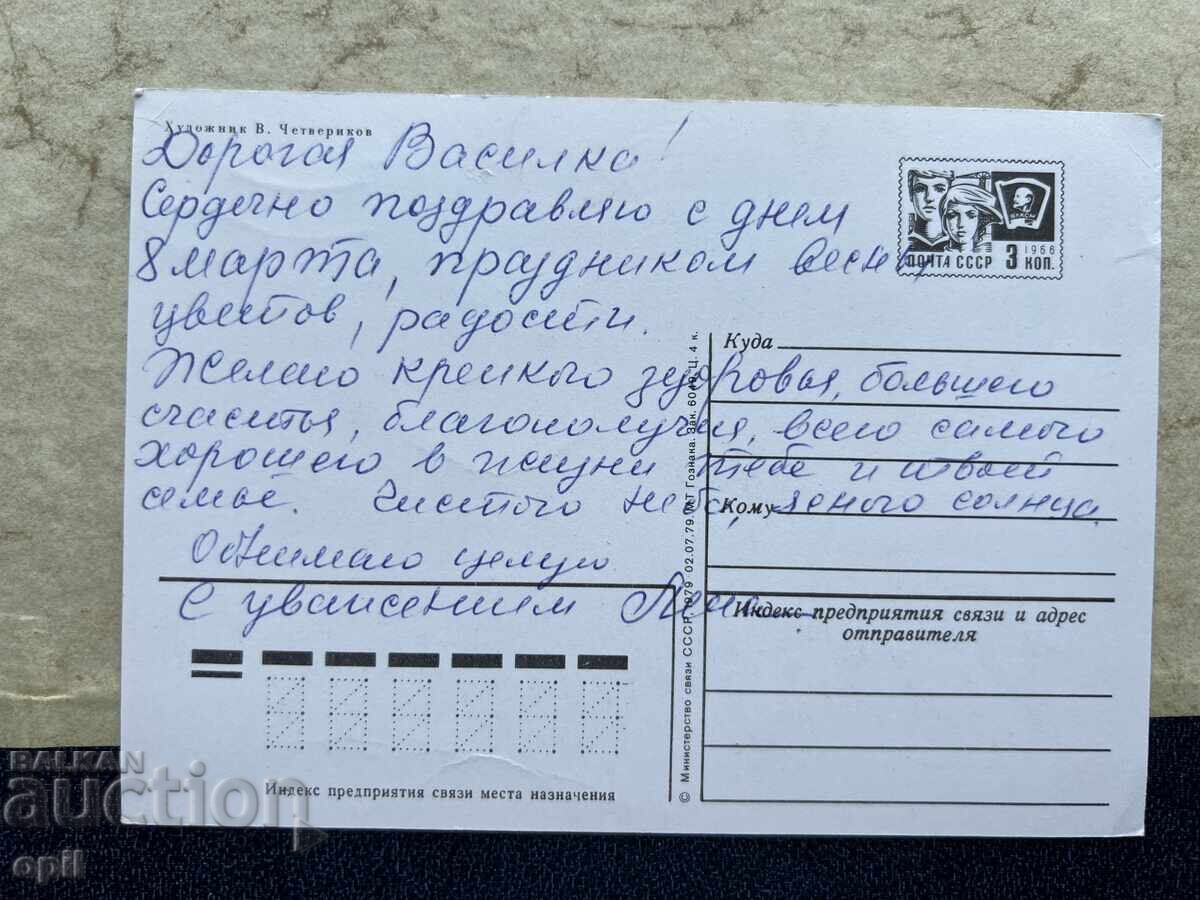 Художник В. Четвериков
Дорогая Василка!
Сердечно поздравляю с днем
8 марта, праздником весны,
цветов, радости.
Желаю крепкого здоровья, большего
счастья, благополучия, всего самого
хорошего в жизни тебе и твоей
семье. Чистого неба, ясного солнца.
Обнимаю целую
С уважением Лена
ВЛКСМ
1966
ПОЧТА СССР 3 КОП.
Куда
Кому
Индекс предприятия связи и адрес
отправителя
© Министерство связи СССР. 1979 02.07.79. Гознака. Зак. 6049. Ц. 4 к.
Индекс предприятия связи места назначения
BALKAN
auction
opil